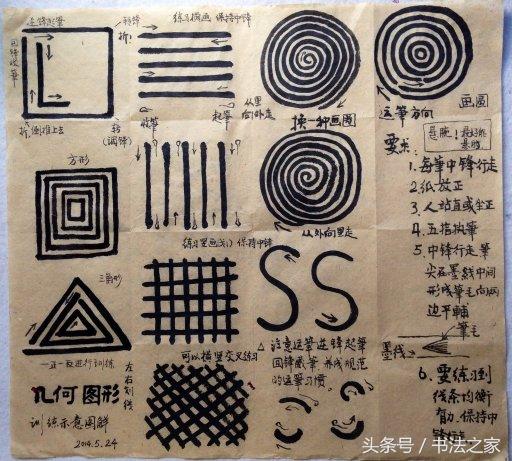 逆锋起筆
转锋
折:
回锋收筆
折 倒推上去
转
(调锋)
练习横画 保持中锋
收筆
起筆
从里向外走
换一种画圈
运筆方向
画圆
方形
练习竖画(1) 保持中锋
从外向里走
要求:
悬腕!
1. 每筆中锋行走
2. 纸放正
3. 人站直或坐正
4. 五指执筆
5. 中锋行走筆
尖在墨线中间
形成筆毛向两
边平铺
筆毛
墨线
6. 要练习到
线条均衡
有力、保持中
锋
三角形
一正一反进行训练
可以横竖交叉练习
△ 注意运筆逆锋起筆
回锋藏筆 养成规范
的运筆习惯.
几何图形
训练示意图解
2014.5.24
左右划线
头条号 / 书法之家